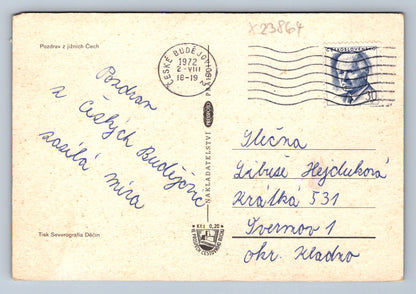 x23864
Pozdrav z jižních Čech
ČESKÉ BUDĚJOVICE 1
1972
2.-VIII
18-19
ČESKOSLOVENSKO
30
Pozdrav
z Českých Budějovic
zasílá míra
NAKLADATELSTVÍ
PRAHA
Slečna
Libuše Hejduková
Krátká 531
Švermov 1
okr. Kladno
Kčs 0,20
Tisk Severografia Děčín